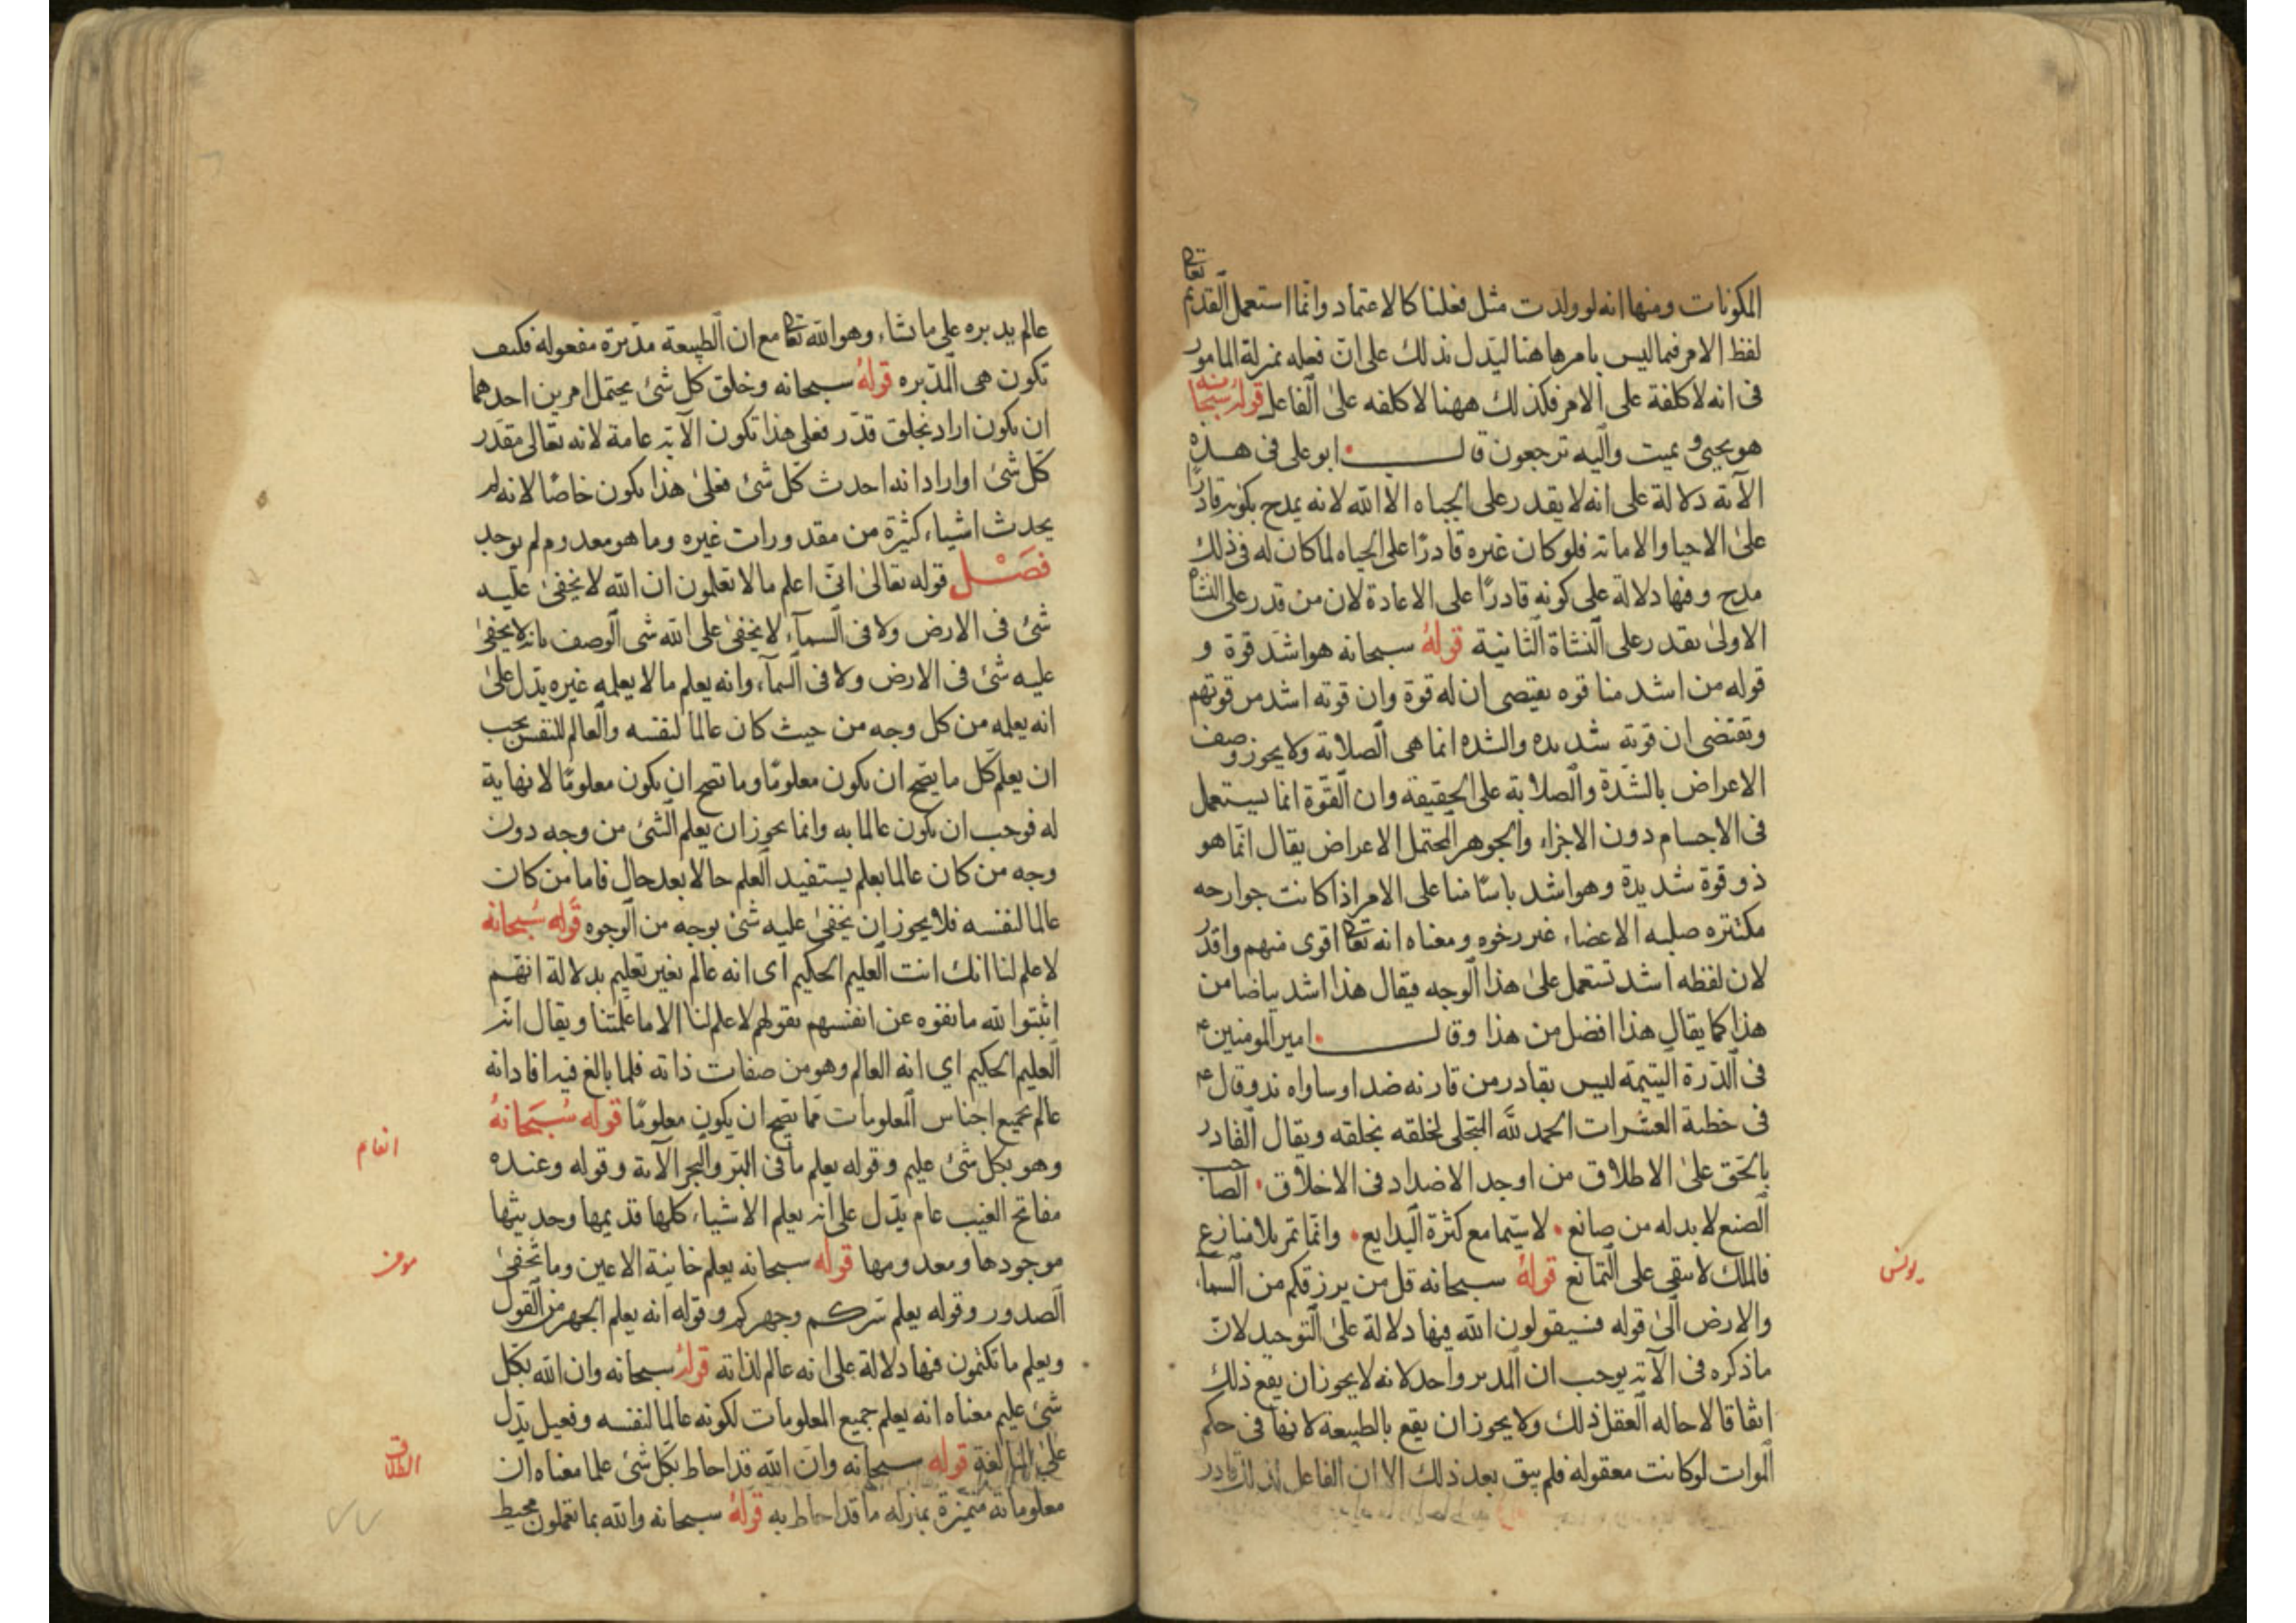 المكونات ومنها انه لو ولدت مثل فعلنا كالاعتماد وانما استعمل القديم تعالى
لفظ الامر فيما ليس بامر هاهنا ليدل بذلك على ان فعله بمنزلة المامور
فى انه لا كلفة على الامر فكذلك ههنا لا كلفه على الفاعل منه قوله سبحانه
هو يحيى ويميت واليه ترجعون قال ابو على فى هذه
الآية دلالة على انه لا يقدر على الحياه الا الله لانه يمدح بكونه قادرًا
على الاحيا والاماتة فلو كان غيره قادرًا على الحياه لما كان له فى ذلك
مدح وفيها دلالة على كونه قادرًا على الاعادة لان من قدر على النشاة
الاولى يقدر على النشاة الثانية قوله سبحانه هو اشد قوة و
قوله من اشد منا قوه يقتضى ان له قوة وان قوته اشد من قوتهم
وتقتضى ان قوته شديده والشده انما هى الصلابة ولا يجوز وصف
الاعراض بالشدة والصلابة على الحقيقة وان القوة انما يستعمل
فى الاجسام دون الاجزاء والجوهر المحتمل الاعراض يقال انما هو
ذو قوة شديدة وهو اشد باسًا منا على الامر اذا كانت جوارحه
مكتنزه صلبه الاعضاء غير رخوه ومعناه انه تعالى اقوى منهم واقدر
لان لفظه اشد تستعمل على هذا الوجه فيقال هذا اشد بياضا من
هذا كما يقال هذا افضل من هذا وقال امير المومنين ع
فى الدرة اليتيمة ليس بقادر من قارنه ضد او ساواه ند وقال ع
فى خطبة العشرات الحمد لله المتجلى لخلقه بخلقه ويقال القادر
بالحق على الاطلاق من اوجد الاضداد فى الاخلاق الصاحب
الصنع لا بد له من صانع لا سيما مع كثرة البدايع وانما تم بلا منازع
فالملك لا يبقى على التمانع قوله سبحانه قل من يرزقكم من السماء
يونس
والارض الى قوله فسيقولون الله فيها دلالة على التوحيد لان
ما ذكره فى الآية يوجب ان المدبر واحد لانه لا يجوز ان يقع ذلك
اتفاقا لاحاله العقل ذلك ولا يجوز ان يقع بالطبيعة لانها فى حكم
الموات لو كانت معقوله فلم يبق بعد ذلك الا ان الفاعل لذلك قادر
عالم يدبره على ما شاء وهو الله تعالى مع ان الطبيعة مدبرة مفعوله فكيف
تكون هى المدبره قوله سبحانه وخلق كل شئ يحتمل امرين احدهما
ان يكون اراد بخلق قدر فعلى هذا تكون الآية عامة لانه تعالى مقدر
كل شئ او اراد انه احدث كل شئ فعلى هذا يكون خاصًا لانه لم
يحدث اشياء كثيرة من مقدورات غيره وما هو معدوم لم يوجد
فصل قوله تعالى انى اعلم ما لا تعلمون ان الله لا يخفى عليه
شئ فى الارض ولا فى السماء لا يخفى على الله شى الوصف بانه لا يخفى
عليه شئ فى الارض ولا فى السماء وانه يعلم ما لا يعلمه غيره يدل على
انه يعلمه من كل وجه من حيث كان عالما لنفسه والعالم للنفس يجب
ان يعلم كل ما يصح ان يكون معلومًا وما تصح ان يكون معلومًا لا نهاية
له فوجب ان يكون عالما به وانما يجوز ان يعلم الشئ من وجه دون
وجه من كان عالما بعلم يستفيد العلم حالا بعد حال فاما من كان
عالما لنفسه فلا يجوز ان يخفى عليه شئ بوجه من الوجوه قوله سبحانه
لا علم لنا انك انت العليم الحكيم اى انه عالم بغير تعليم بدلالة انهم
اثبتوا لله ما نفوه عن انفسهم بقولهم لا علم لنا الا ما علمتنا ويقال انه
العليم الحكيم اي انه العالم وهو من صفات ذاته فلما بالغ فيه افاد انه
عالم بجميع اجناس المعلومات مما يصح ان يكون معلومًا قوله سبحانه
انعام
وهو بكل شئ عليم وقوله يعلم ما فى البر والبحر الآية وقوله وعنده
مفاتح الغيب عام يدل على انه يعلم الاشياء كلها قديمها وحديثها
موجودها ومعدومها قوله سبحانه يعلم خاينة الاعين وما تخفى
مومن
الصدور وقوله يعلم سركم وجهركم وقوله انه يعلم الجهر من القول
ويعلم ما تكتمون فيها دلالة على انه عالم لذاته قوله سبحانه وان الله بكل
شئ عليم معناه انه يعلم جميع المعلومات لكونه عالما لنفسه وفعيل يدل
على المبالغة قوله سبحانه وان الله قد احاط بكل شئ علما معناه ان
الطلاق
معلوماته متميزة بمنزله ما قد احاط به قوله سبحانه والله بما تعملون محيط